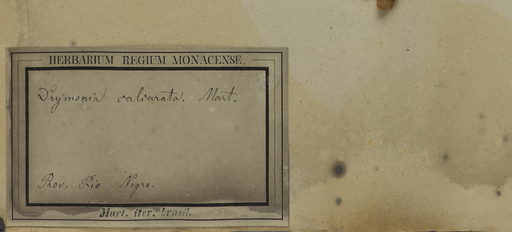 HERBARIUM REGIUM MONACENSE.
Drymonia calcarata. Mart.
Prov. Rio Negro.
Mart. iter. brasil.